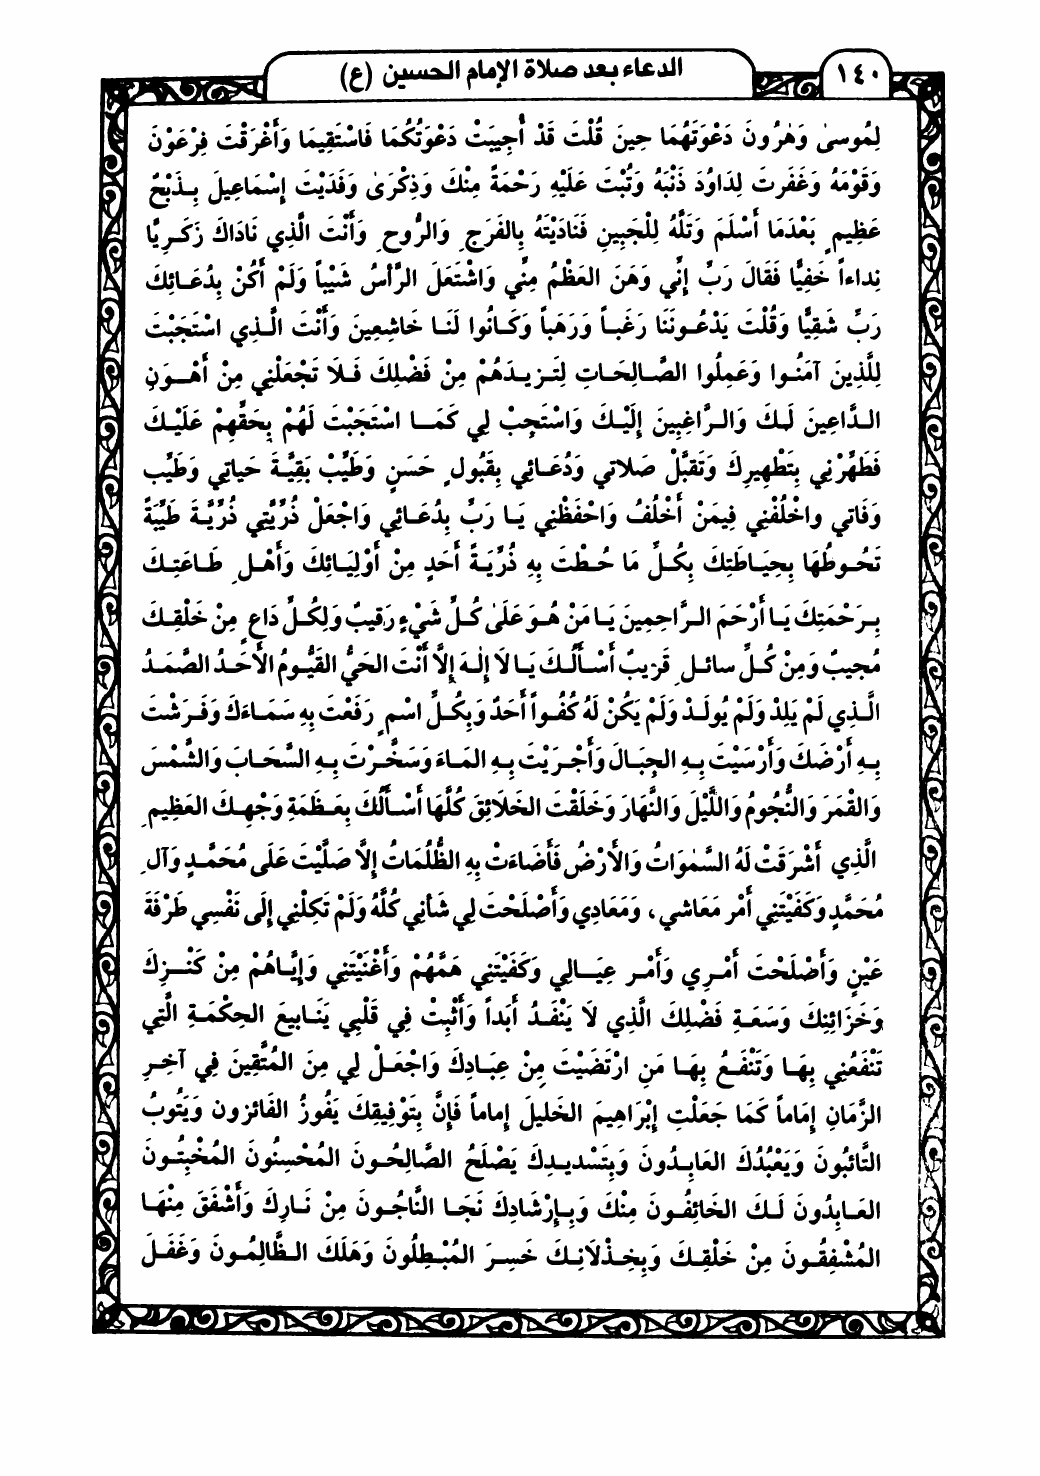 ١٤٠
الدعاء بعد صلاة الإمام الحسين (ع)
لِمُوسىٰ وَهٰرُونَ دَعْوَتَهُمَا حِينَ قُلْتَ قَدْ أُجِيبَتْ دَعْوَتُكُمَا فَاسْتَقِيمَا وَأَغْرَقْتَ فِرْعَوْنَ
وَقَوْمَهُ وَغَفَرتَ لِدَاوُدَ ذَنْبَهُ وَتُبْتَ عَلَيْهِ رَحْمَةً مِنْكَ وَذِكْرَىٰ وَفَدَيْتَ إِسْمَاعِيلَ بِـذَبْحٌ
عَظِيمٍ بَعْدَمَا أَسْلَمَ وَتَلَّهُ لِلْجَبِينِ فَنَادَيْتَهُ بِالفَرَجِ وَالرُّوحِ وَأَنْتَ الَّذِي نَادَاكَ زَكَـرِيَّا
نِداءاً خَفِيًّا فَقَالَ رَبِّ إِنِّي وَهَنَ العَظْمُ مِنِّي وَاشْتَعَلَ الرَّأسُ شَيْباً وَلَمْ أَكُنْ بِدُعَـائِكَ
رَبِّ شَقِيًّا وَقُلْتَ يَدْعُـونَنَا رَغَبـاً وَرَهَباً وَكَـانُوا لَنَـا خَاشِعِينَ وَأَنْتَ الَّـذِي اسْتَجَبْتَ
لِلَّذِينَ آمَنُـوا وَعَمِلُوا الصَّـالِحَـاتِ لِتَـزِيـدَهُمْ مِنْ فَضْلِكَ فَـلَا تَجْعَلْنِي مِنْ أَهْـوَنِ
الـدَّاعِينَ لَـكَ وَالـرَّاغِبِينَ إِلَيْـكَ وَاسْتَجِبْ لِي كَمَـا اسْتَجَبْتَ لَهُمْ بِحَقِّهِمْ عَلَيْـكَ
فَطَهِّرْنِي بِتَطْهِيرِكَ وَتَقبَّلْ صَلاتي وَدُعَـائِي بِقَبُولٍ حَسَنٍ وَطَيِّبْ بَقِيَّـةَ حَياتِي وَطَيِّب
وَفَاتي واخْلُفْنِي فِيمَنْ أَخْلُفُ وَاحْفَظْنِي يَـا رَبِّ بِدُعَـائِي وَاجْعَلْ ذُرِّيَّتِي ذُرِّيَّـةً طَيِّبَةً
تَحُـوطُهَا بِحِيَـاطَتِكَ بِكُـلِّ مَا حُـطْتَ بِهِ ذُرِّيَـةَ أَحَدٍ مِنْ أَوْلِيَـائِكَ وَأَهْـلِ طَـاعَتِـكَ
بِـرَحْمَتِكَ يَـا أَرْحَمَ الـرَّاحِمِينَ يَـا مَنْ هُـوَ عَلَىٰ كُـلِّ شَيْءٍ رَقِيبٌ وَلِكُـلِّ دَاعٍ مِنْ خَلْقِـكَ
مُجِيبٌ وَمِنْ كُـلِّ سائـلٍ قَرِيبٌ أَسْـأَلُـكَ يَـا لَا إِلٰـهَ إِلَّا أَنْتَ الحَيُّ القَيُّـومُ الأَحَـدُ الصَّمَـدُ
الَّـذِي لَمْ يَلِدْ وَلَمْ يُولَـدْ وَلَمْ يَكُنْ لَهُ كُفُـواً أَحَدٌ وَبِكُـلِّ اسْمٍ رَفَعْتَ بِهِ سَمَـاءَكَ وَفَـرَشْتَ
بِـهِ أَرْضَكَ وَأَرْسَيْتَ بِـهِ الجِبَـالَ وَأَجْـرَيْتَ بِـهِ المَـاءَ وَسَخَّـرْتَ بِـهِ السَّحَـابَ وَالشَّمْسَ
وَالقَمَرَ وَالنُّجُومُ وَاللَّيْلَ وَالنَّهَارَ وَخَلَقْتَ الخَلَائِقَ كُلَّهَا أَسْـأَلُكَ بِعَـظَمَةِ وَجْهِـكَ العَظِيمِ
الَّذِي أَشْرَقَتْ لَهُ السَّمٰوَاتُ وَالأَرْضُ فَأَضَاءَتْ بِهِ الظُّلُمَاتُ إِلَّا صَلَّيْتَ عَلَى مُحَمَّـدٍ وَآلِ
مُحَمَّدٍ وَكَفَيْتَنِي أَمْر مَعَاشي، وَمَعَادِي وَأَصْلَحْتَ لِي شَأنِي كُلَّهُ وَلَمْ تَكِلْنِي إِلَى نَفْسِي طَرْفَةَ
عَيْنٍ وَأَصْلَحْتَ أَمْـرِي وَأَمْـر عِيَــالِي وَكَفَيْتَنِي هَمَّهُمْ وَأَغْنَيْتَنِي وَإِيَّـاهُمْ مِنْ كَنْــزِكَ
وَخَزَائِنِكَ وَسَعَـةِ فَضْلِكَ الَّذِي لَا يَنْفَـدُ أَبَداً وَأَثْبِتْ فِي قَلْبِي يَنَـابِيعَ الحِكْمَـةِ الَّتِي
تَنْفَعُنِي بِهَـا وَتَنْفَـعُ بِهَـا مَنِ ارْتَضَيْتَ مِنْ عِبَـادِكَ وَاجْعَـلْ لِي مِنَ المُتَّقِينَ فِي آخِـرِ
الزَّمَانِ إِمَاماً كَمَا جَعَلْتِ إِبْرَاهِيمَ الخَلِيلَ إِماماً فَإِنَّ بِتَوْفِيقِكَ يَفُوزُ الفَائزون وَيَتُوبُ
التَّائبُونَ وَيَعْبُدُكَ العَابِـدُونَ وَبِتَسْديـدِكَ يَصْلَحُ الصَّـالِحُـونَ المُحْسِنُونَ المُخْبِتُـونَ
العَـابِدُونَ لَـكَ الخَائِفُـونَ مِنْكَ وَبِـإِرْشَادِكَ نَجَـا النَّاجُـونَ مِنْ نَـارِكَ وَأَشْفَقَ مِنْهَـا
المُشْفِقُـونَ مِنْ خَلْقِـكَ وَبِخِـذْلَانِـكَ خَسِـرَ المُبْـطِلُونَ وَهَلَكَ الـظَّالِمُـونَ وَغَفَـلَ